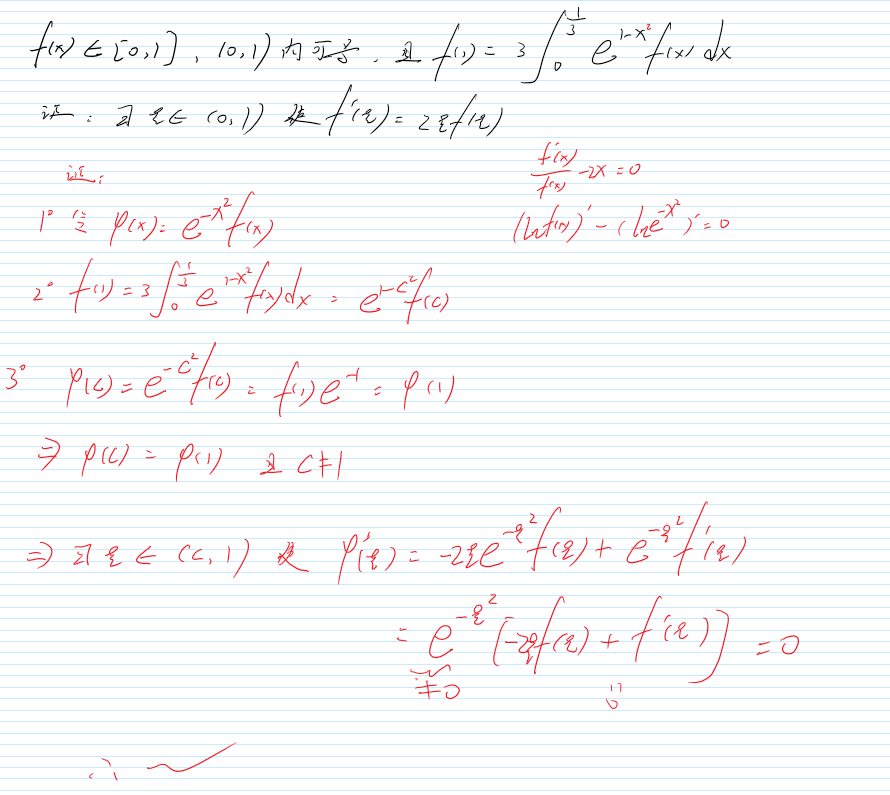 f(x) ∈ [0,1], (0,1) 内可导, 且 f(1) = 3∫₀^{1/3} e^{1-x²} f(x) dx
证: ∃ ξ ∈ (0,1) 使 f'(ξ) = 2ξf(ξ)
证:
f'(x)/f(x) - 2x = 0
1° 令 φ(x) = e^{-x²} f(x)
(ln f(x))' - (ln e^{-x²})' = 0
2° f(1) = 3∫₀^{1/3} e^{1-x²} f(x) dx = e^{1-c²} f(c)
3° φ(c) = e^{-c²} f(c) = f(1) e^{-1} = φ(1)
⇒ φ(c) = φ(1) 且 c ≠ 1
⇒ ∃ ξ ∈ (c,1) 使 φ'(ξ) = -2ξe^{-ξ²} f(ξ) + e^{-ξ²} f'(ξ)
= e^{-ξ²} [-2ξf(ξ) + f'(ξ)] = 0
≠0 =0
∴